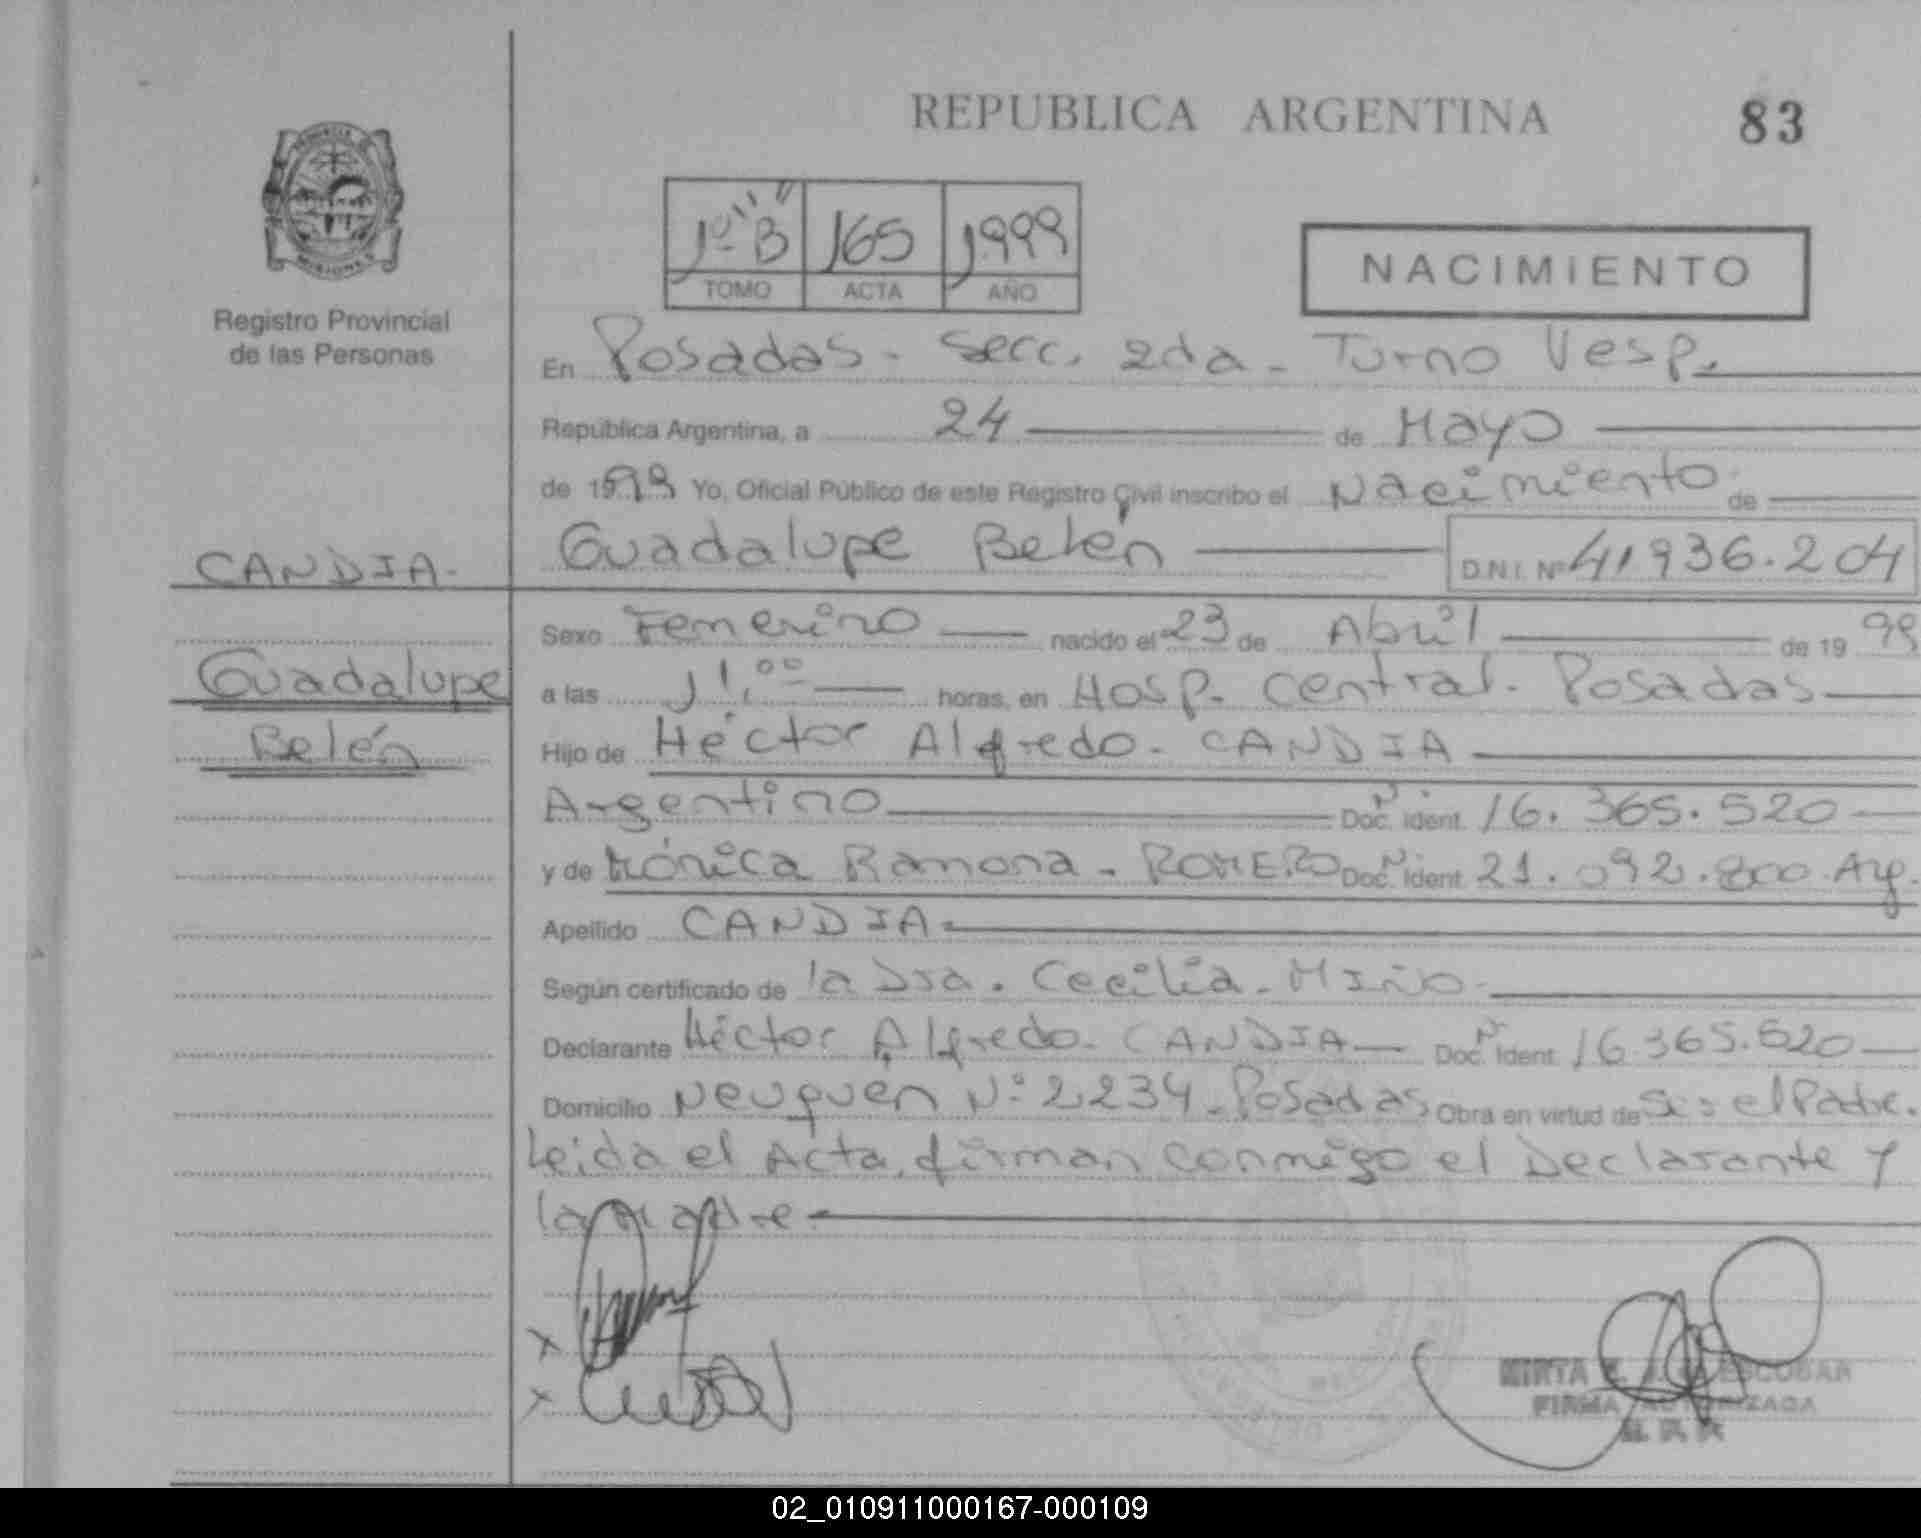 REPUBLICA ARGENTINA
83
PROVINCIA
MISIONES
Registro Provincial
de las Personas
1º "B" 165 1999
TOMO ACTA AÑO
NACIMIENTO
En Posadas - Secc. 2da - Turno Vesp.
República Argentina, a 24 de Mayo
de 1999 Yo, Oficial Público de este Registro Civil inscribo el Nacimiento de
Guadalupe Belén D.N.I. Nº 41936.204
CANDIA-
Sexo Femenino nacido el 23 de Abril de 19 99
Guadalupe
a las 11:00 horas, en Hosp. Central. Posadas
Belén
Hijo de Héctor Alfredo - CANDIA
Argentino Doc. ident. Nº 16.365.520
y de Mónica Ramona - ROMERO Doc. ident. Nº 21.092.800. Arg.
Apellido CANDIA
Según certificado de la Dra. Cecilia - MIÑO
Declarante Héctor Alfredo - CANDIA Doc. ident. Nº 16.365.520
Domicilio Neuquén Nº 2234 - Posadas Obra en virtud de Ser el Padre.
Leida el Acta, firman conmigo el Declarante y
la Madre
MIRTA ESCOBAR
FIRMA AUTORIZADA
02_010911000167-000109